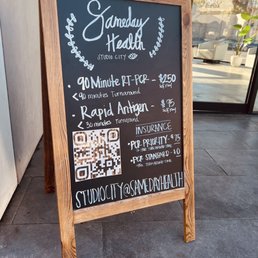 Sameday
Health
STUDIO CITY
• 90 Minute RT-PCR - $250
< 90 minutes Turnaround
• Rapid Antigen - $75
< 30 minutes Turnaround
INSURANCE
• PCR PRIORITY - $75
• PCR STANDARD - $0
STUDIOCITY@SAMEDAYHEALTH